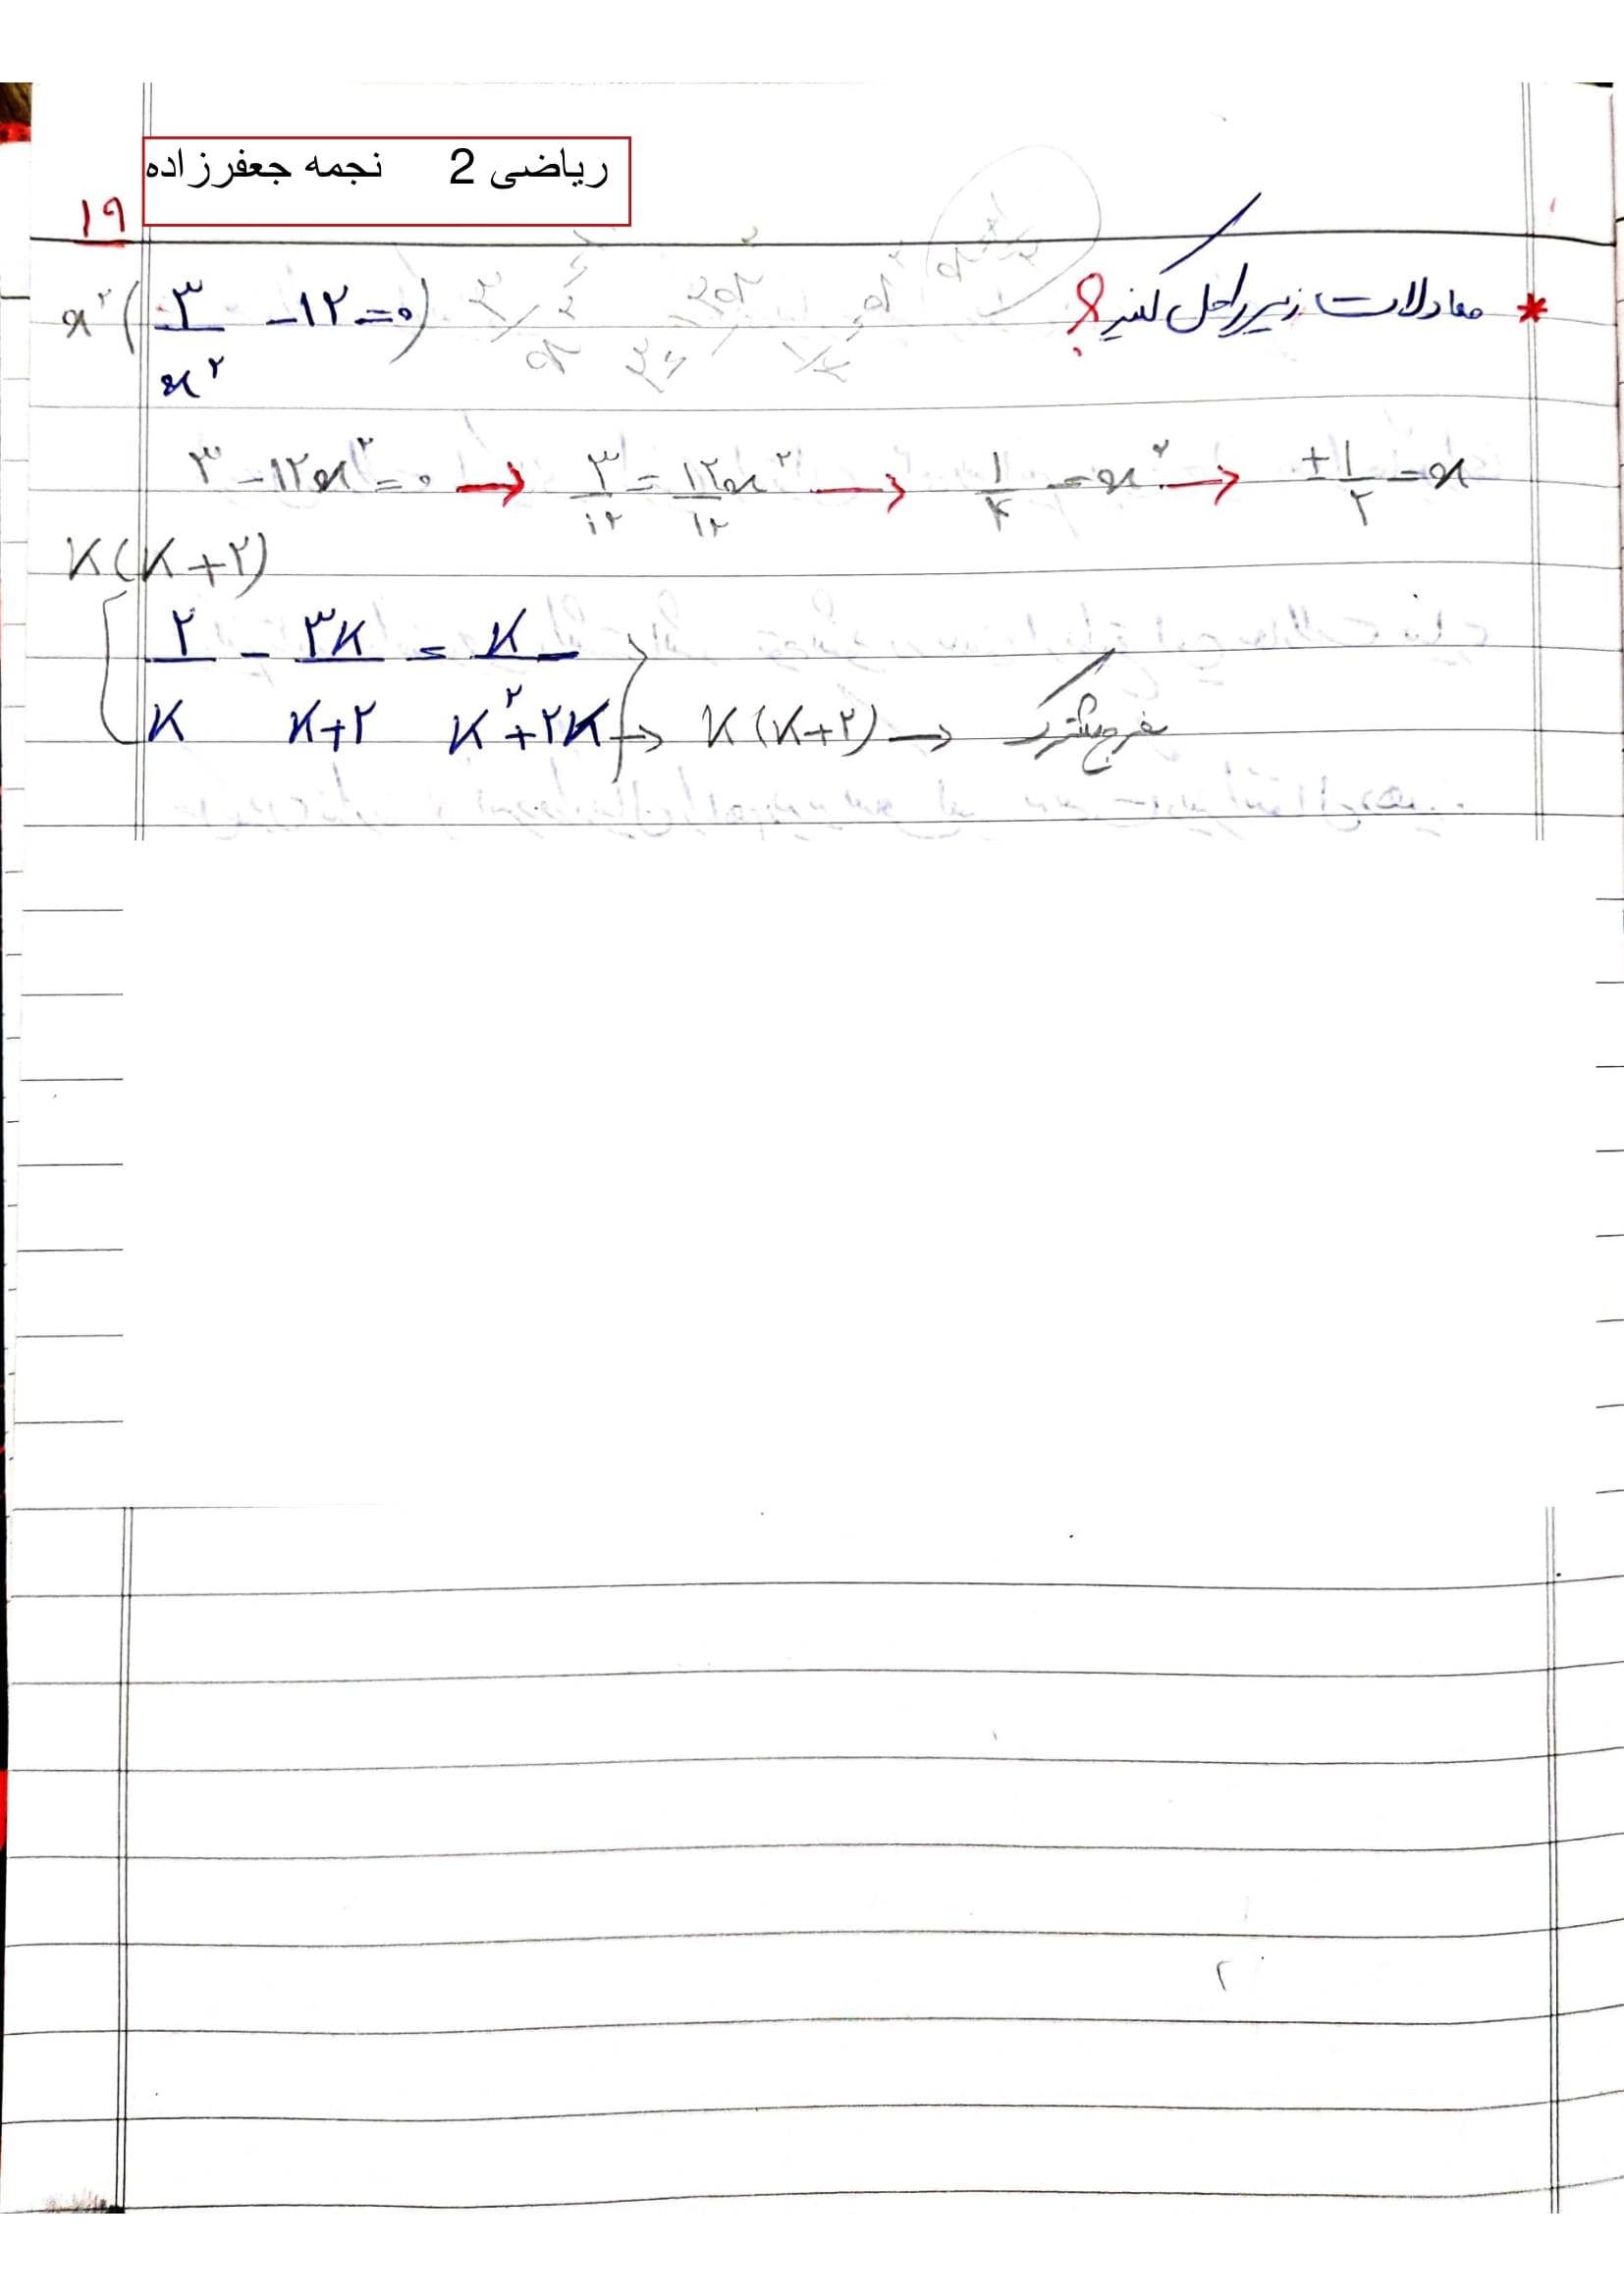 ریاضی 2 نجمه جعفرزاده
۱۹
* معادلات زیر را حل کنید؟
x²(۳/x² - ۱۲ = ۰)
۳ - ۱۲x² = ۰ → ۳/۱۲ = ۱۲x²/۱۲ → ۱/۴ = x² → ±۱/۲ = x
K(K+۲)
(۲/K - ۳K/K+۲ = K/K²+۲K) → K(K+۲) → مخرج مشترک